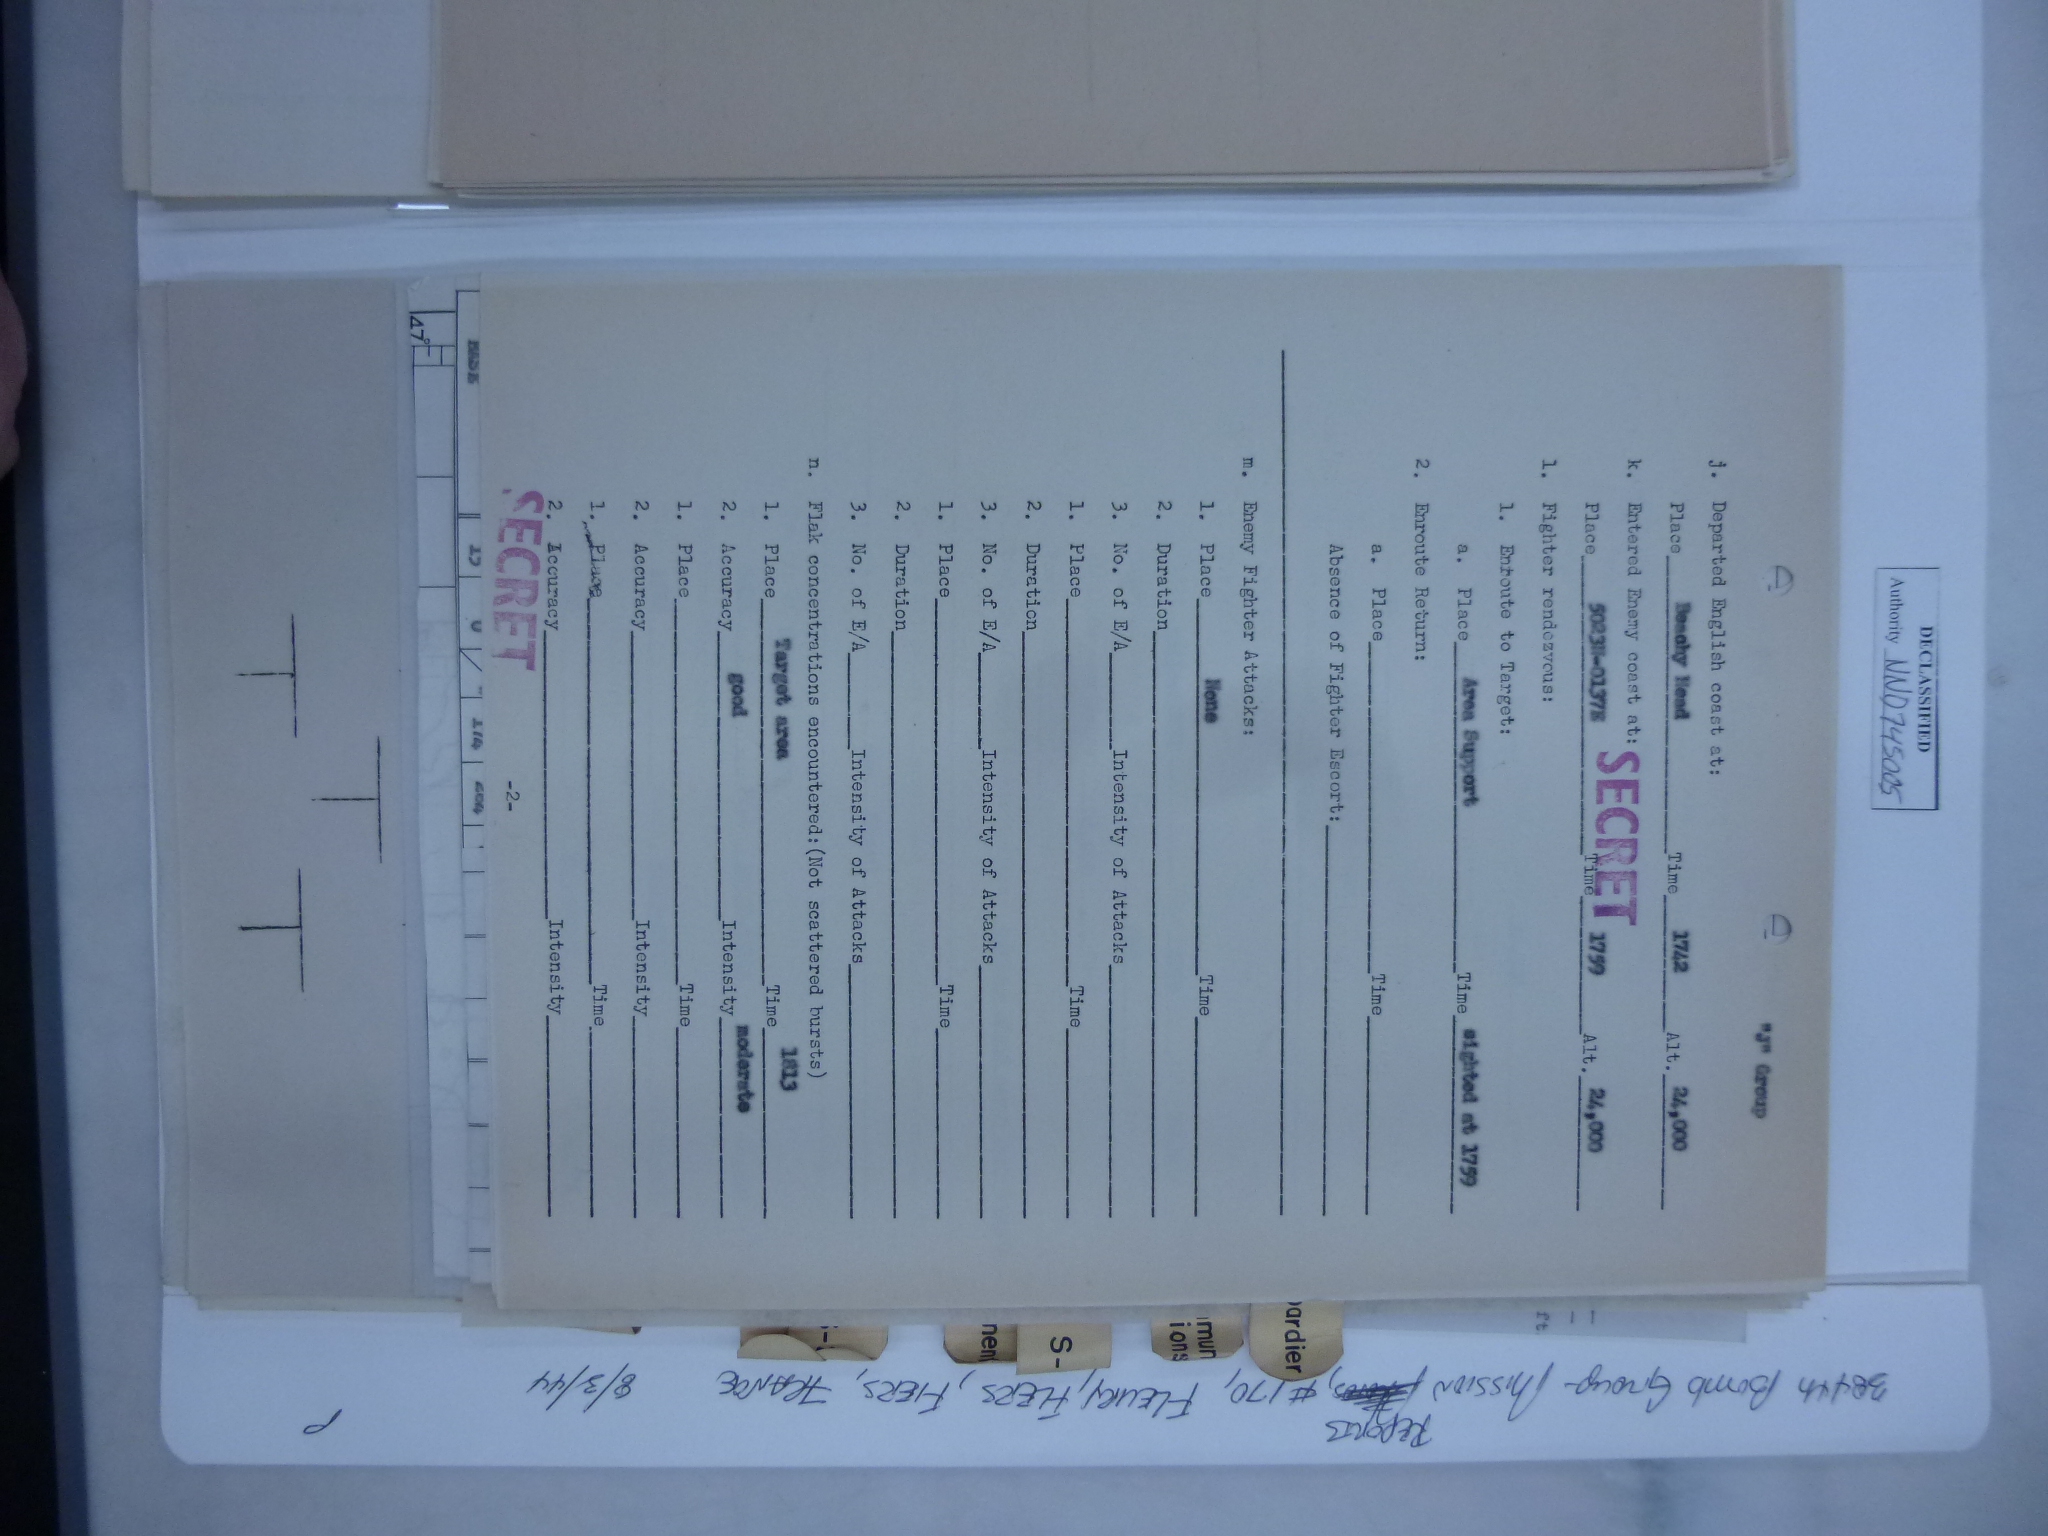 DECLASSIFIED
Authority NND745005
"J" Group
j. Departed English coast at:
Place Beachy Head Time 1742 Alt. 24,000
k. Entered Enemy coast at:
SECRET
Place 5023N-0137E Time 1759 Alt. 24,000
l. Fighter rendezvous:
1. Enroute to Target:
a. Place Area Support Time sighted at 1759
2. Enroute Return:
a. Place Time
Absence of Fighter Escort:
m. Enemy Fighter Attacks:
1. Place None Time
2. Duration
3. No. of E/A Intensity of Attacks
1. Place Time
2. Duration
3. No. of E/A Intensity of Attacks
1. Place Time
2. Duration
3. No. of E/A Intensity of Attacks
n. Flak concentrations encountered:(Not scattered bursts)
1. Place Target area Time 1813
2. Accuracy good Intensity moderate
1. Place Time
2. Accuracy Intensity
1. Place Time
2. Accuracy Intensity
-2-
SECRET
47°
ardier
mun
ions
S-
nen
ft
384th Bomb Group - Mission #170, Fleury, Fiers, Fiers, France 8/3/44
Reports
P